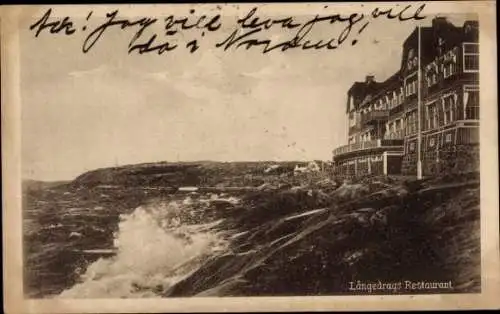 Ack! Jag vill leva jag vill
dö i Norden!
Långedrags Restaurant.